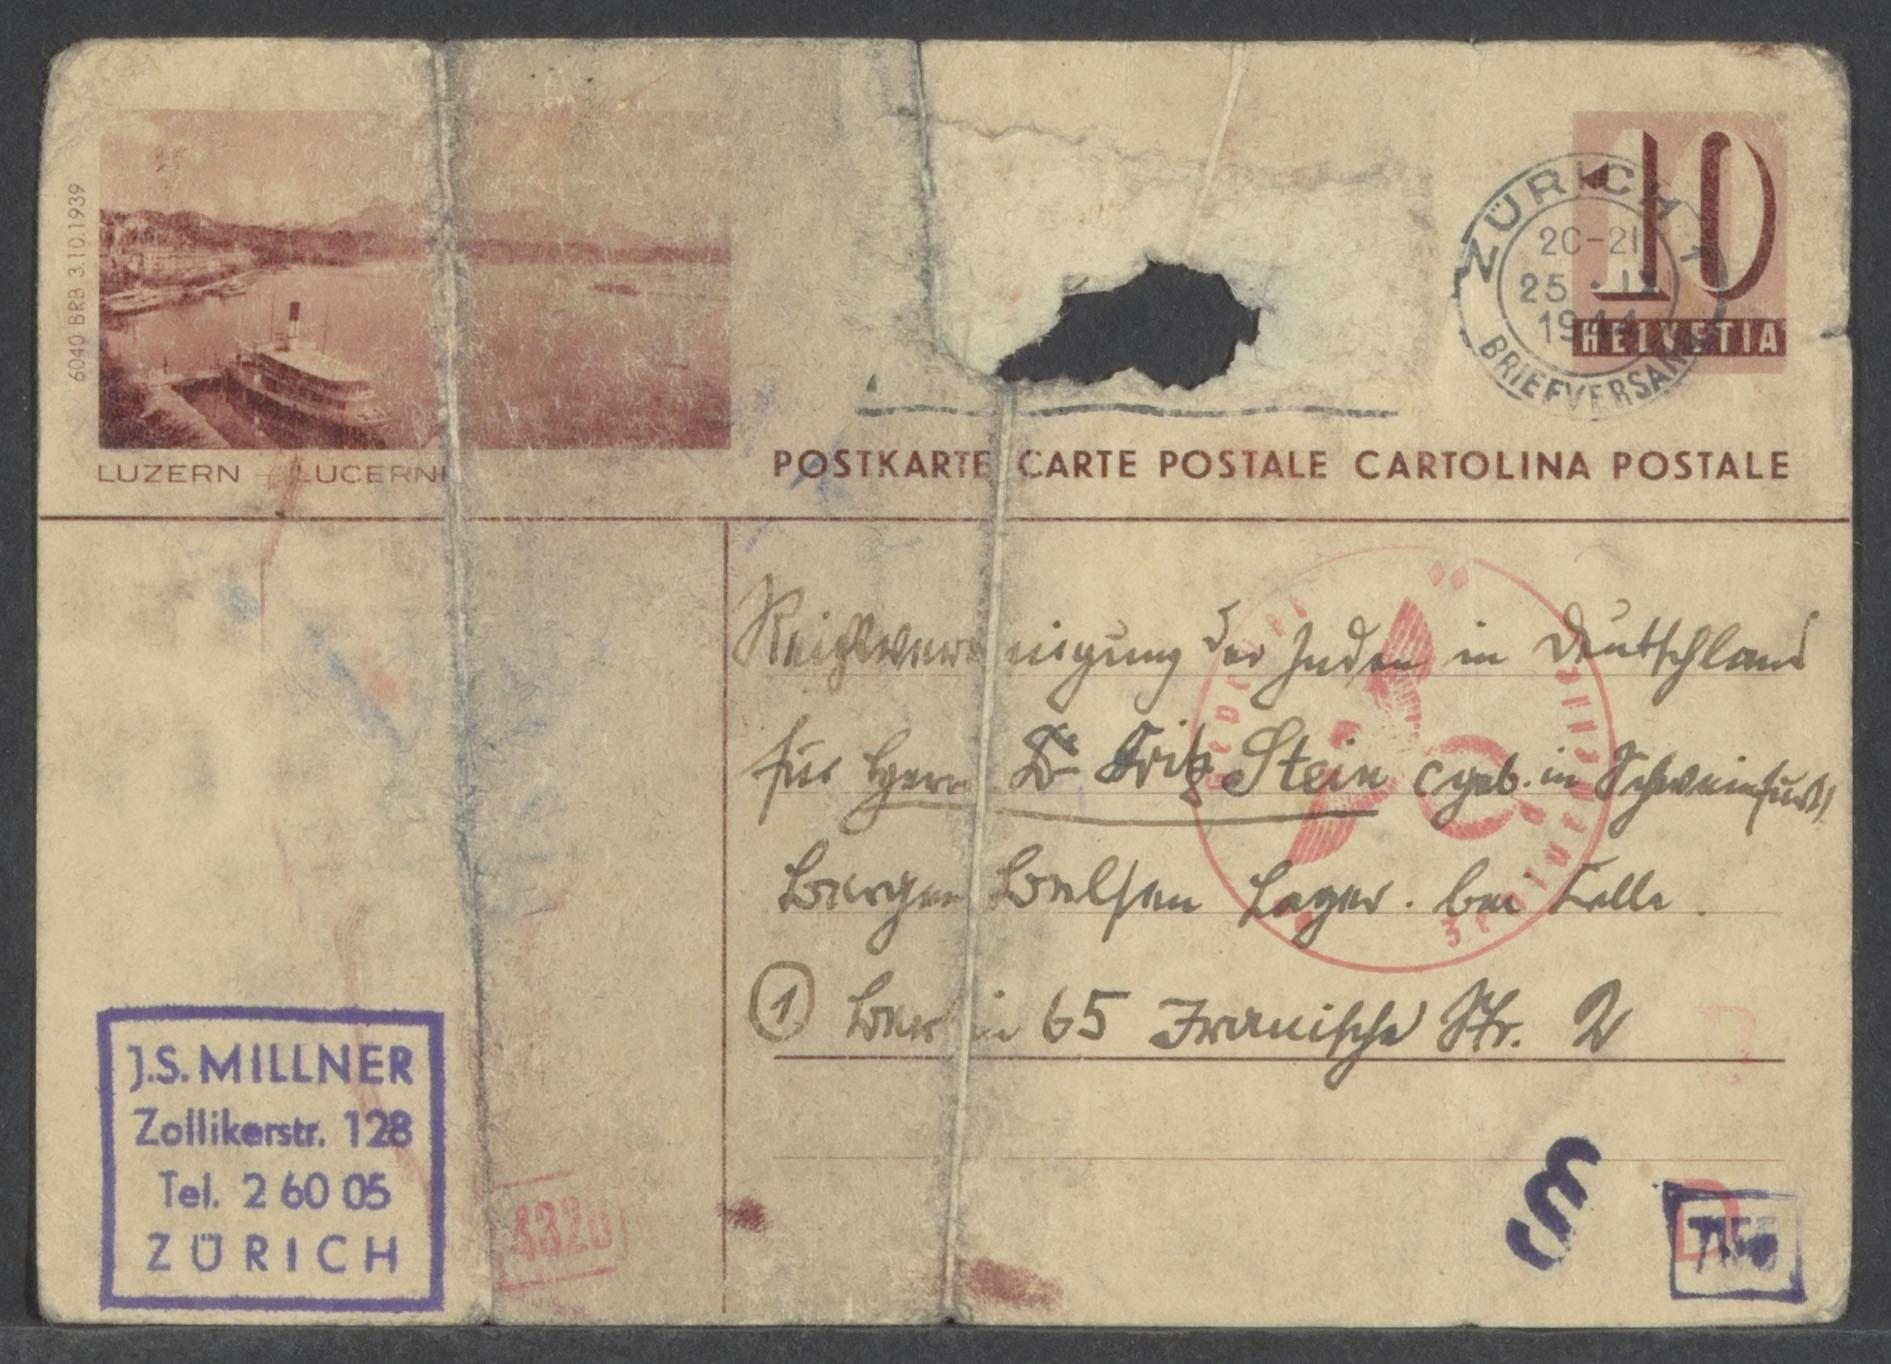 6040 BRB 3.10.1939
LUZERN - LUCERN
ZÜRICH 1
20-21
25
1944
BRIEFVERSAN
10
HELVETIA
POSTKARTE CARTE POSTALE CARTOLINA POSTALE
Reichsvereinigung der Juden in Deutschland
für Herrn Dr Fritz Stein (geb. in Schweinfurt)
Bergen Belsen Lager. bei Celle.
① Berlin 65 Iranische Str. 2
J.S. MILLNER
Zollikerstr. 128
Tel. 2 60 05
ZÜRICH
4320